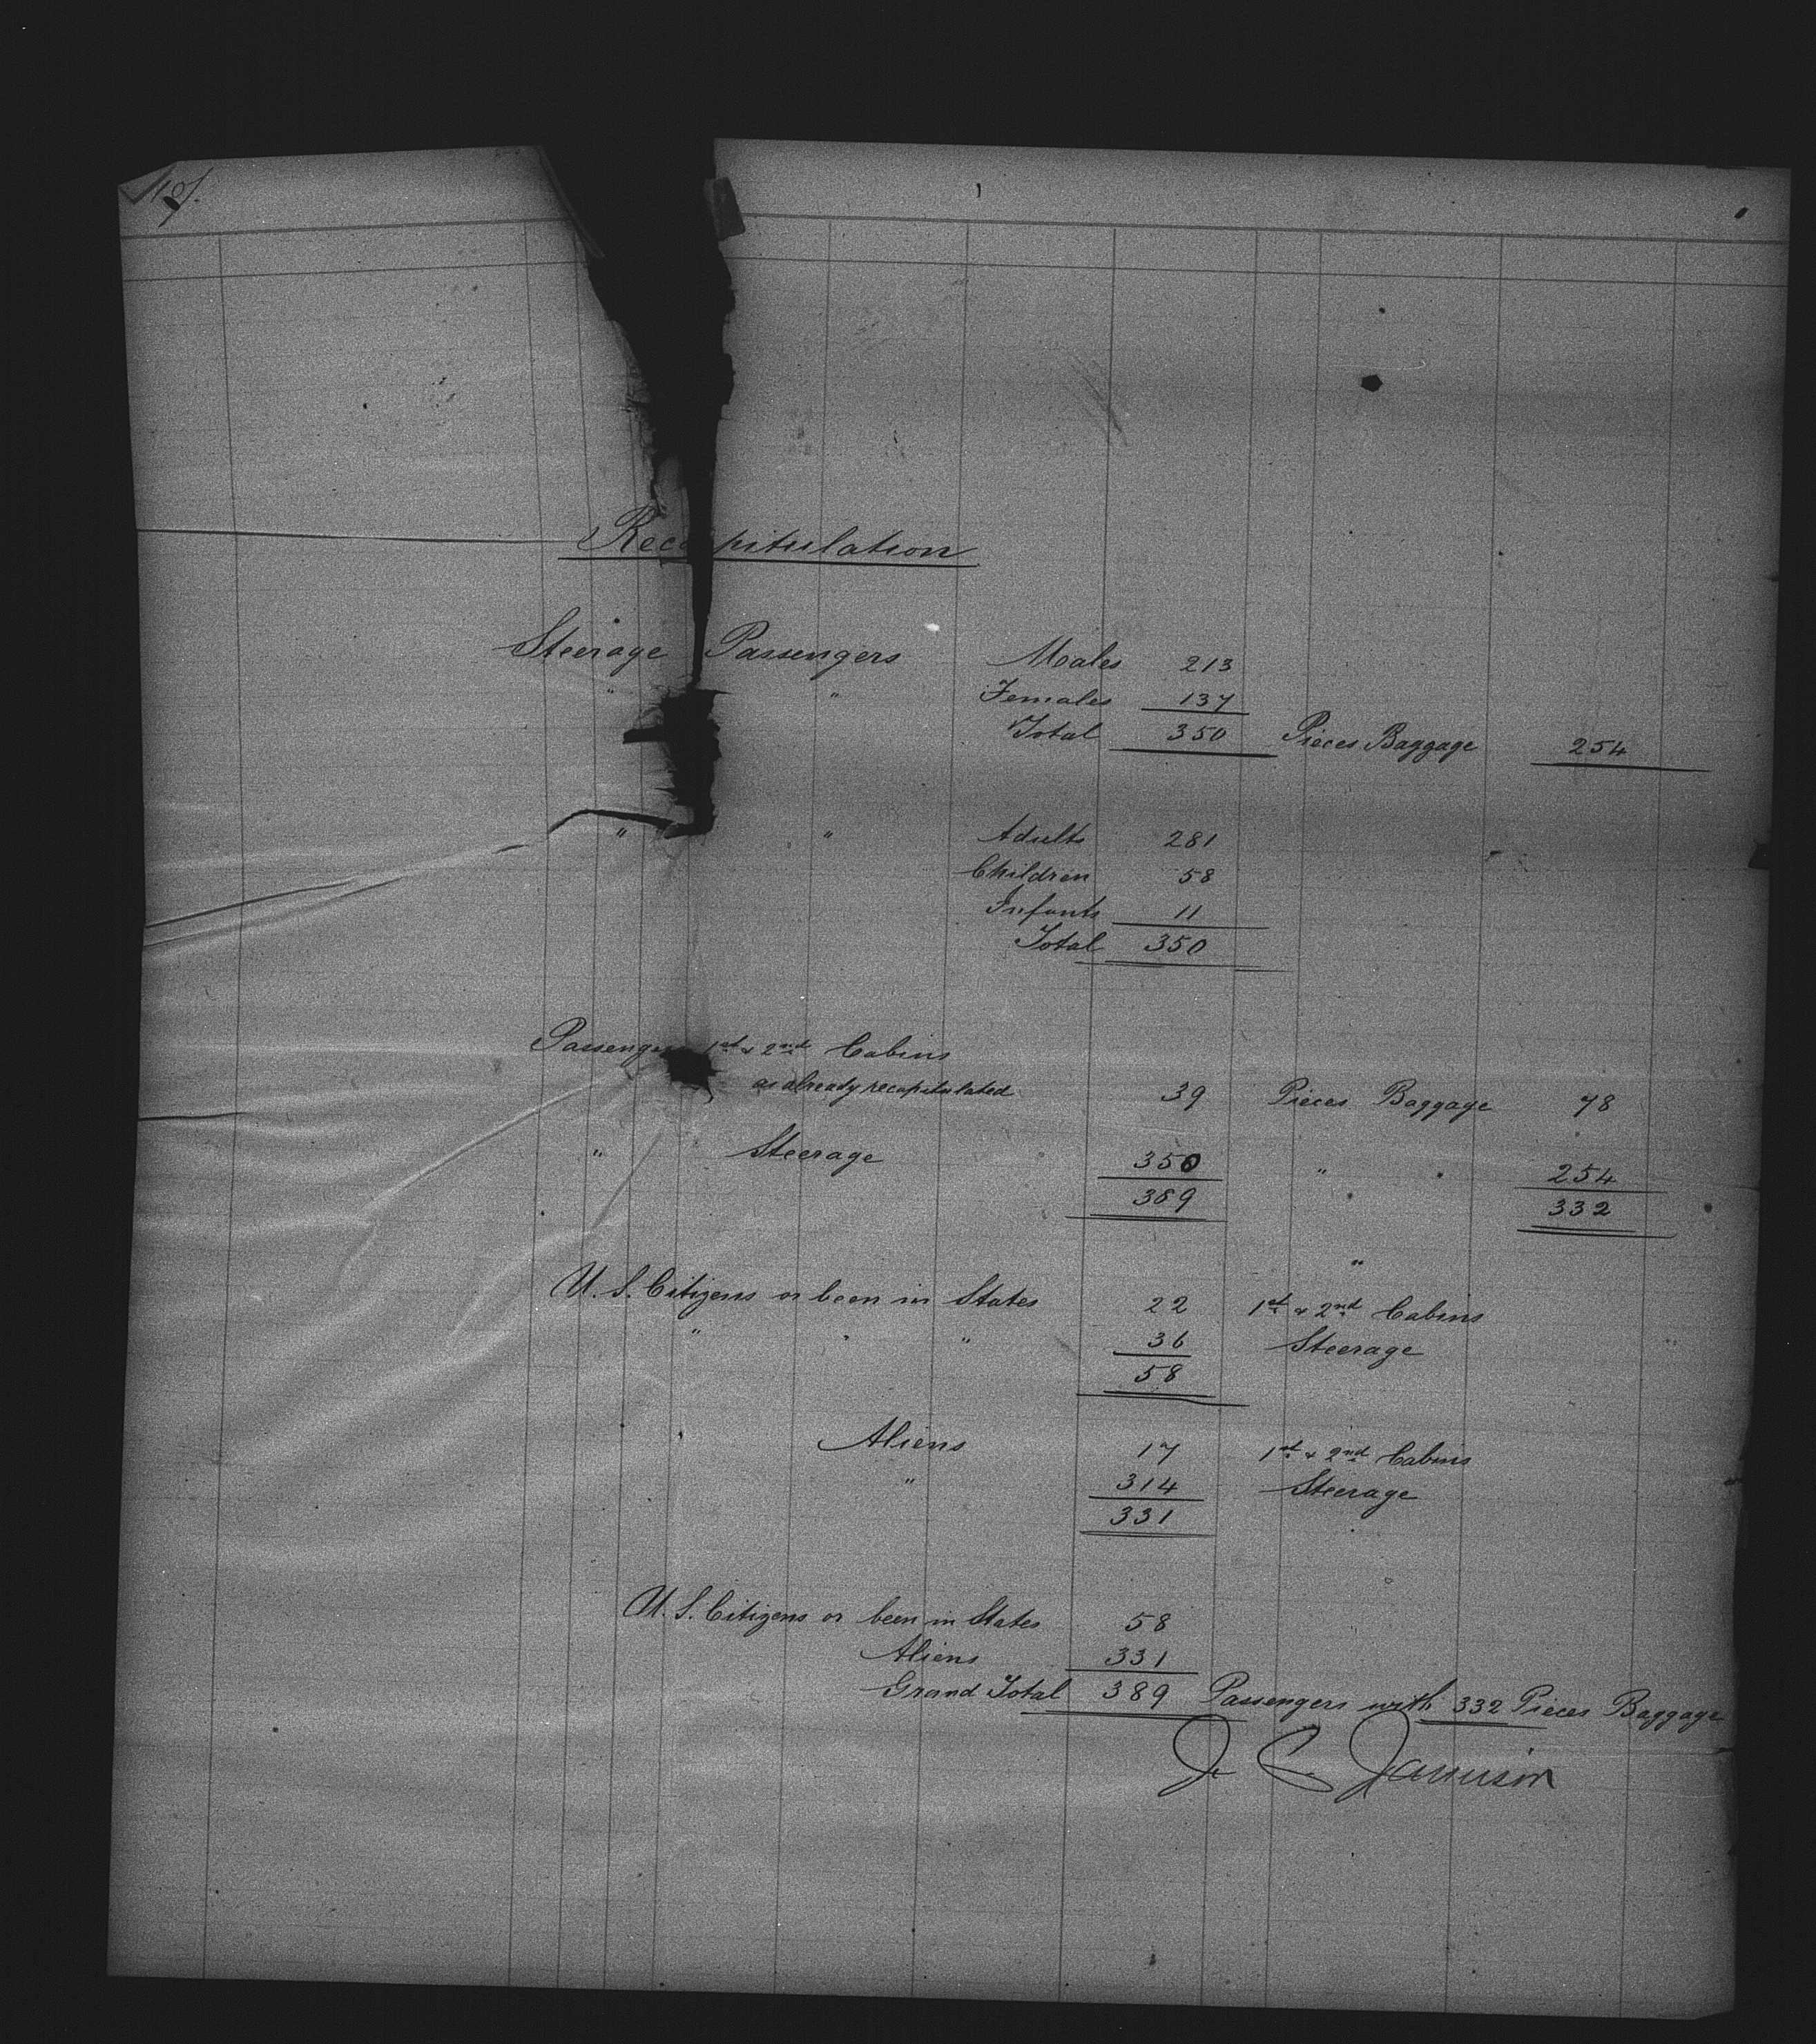 Recapitulation
Steerage Passengers Males 213
" " Females 137
Total 350 Pieces Baggage 254
" " Adults 281
Children 58
Infants 11
Total 350
Passengers 1st & 2nd Cabins
as already recapitulated 39 Pieces Baggage 78
" Steerage 350 " " 254
389 332
"
U.S. Citizens or been in States 22 1st & 2nd Cabins
" " " 36 Steerage
58
Aliens 17 1st & 2nd Cabins
" 314 Steerage
331
U.S. Citizens or been in States 58
Aliens 331
Grand Total 389 Passengers with 332 Pieces Baggage